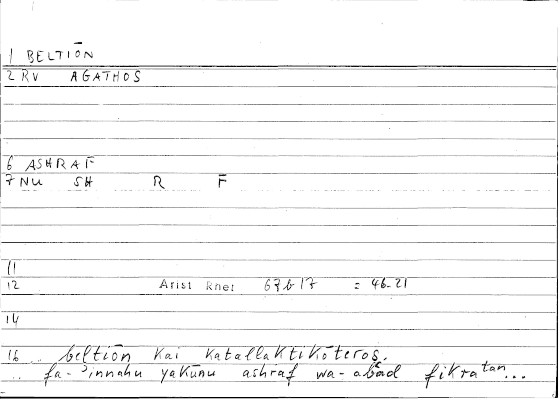 1 BELTIŌN
2 RV AGATHOS
6 ASHRAF
7 NU SH R F
11
12 Arist Rhet 67b17 = 46-21
14
16 .. beltiōn kai katallaktikōteros.
.. fa-'innahu yakūnu ashraf wa-abʿad fikratan...